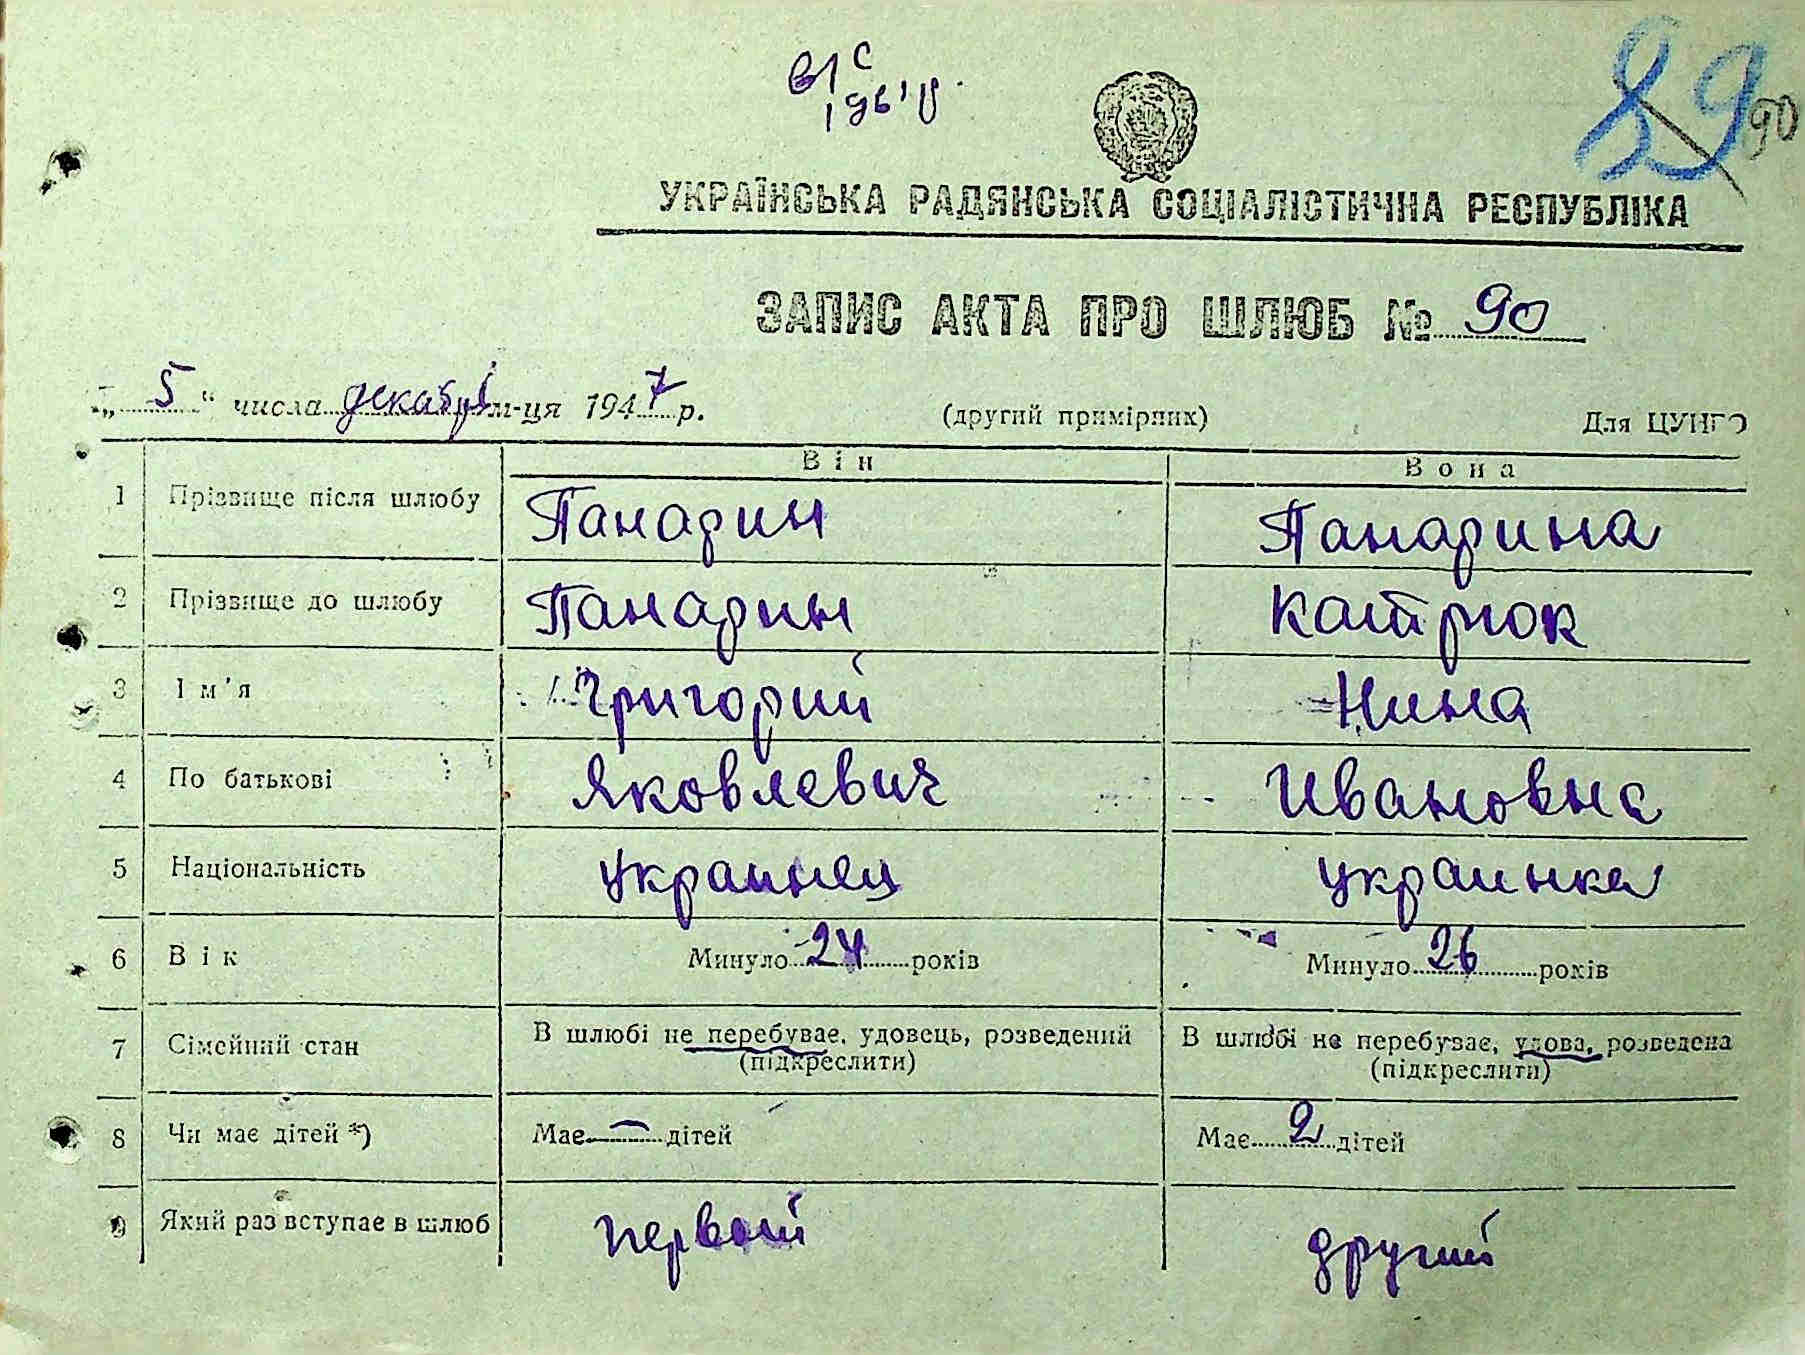 89 90
УКРАЇНСЬКА РАДЯНСЬКА СОЦІАЛІСТИЧНА РЕСПУБЛІКА
ЗАПИС АКТА ПРО ШЛЮБ № 90
„ 5 “ числа декабрі м-ця 1947 р. (другий примірник) Для ЦУНГО
Він Вона
1 Прізвище після шлюбу Панарин Панарина
2 Прізвище до шлюбу Панарин Катрюк
3 Ім'я Григорий Нина
4 По батькові Яковлевич Ивановна
5 Національність украинец украинка
6 Вік Минуло 24 років Минуло 26 років
7 Сімейний стан В шлюбі не перебуває, удовець, розведений В шлюбі не перебуває, удова, розведена
(підкреслити) (підкреслити)
8 Чи має дітей *) Має — дітей Має 2 дітей
9 Який раз вступає в шлюб первый другий